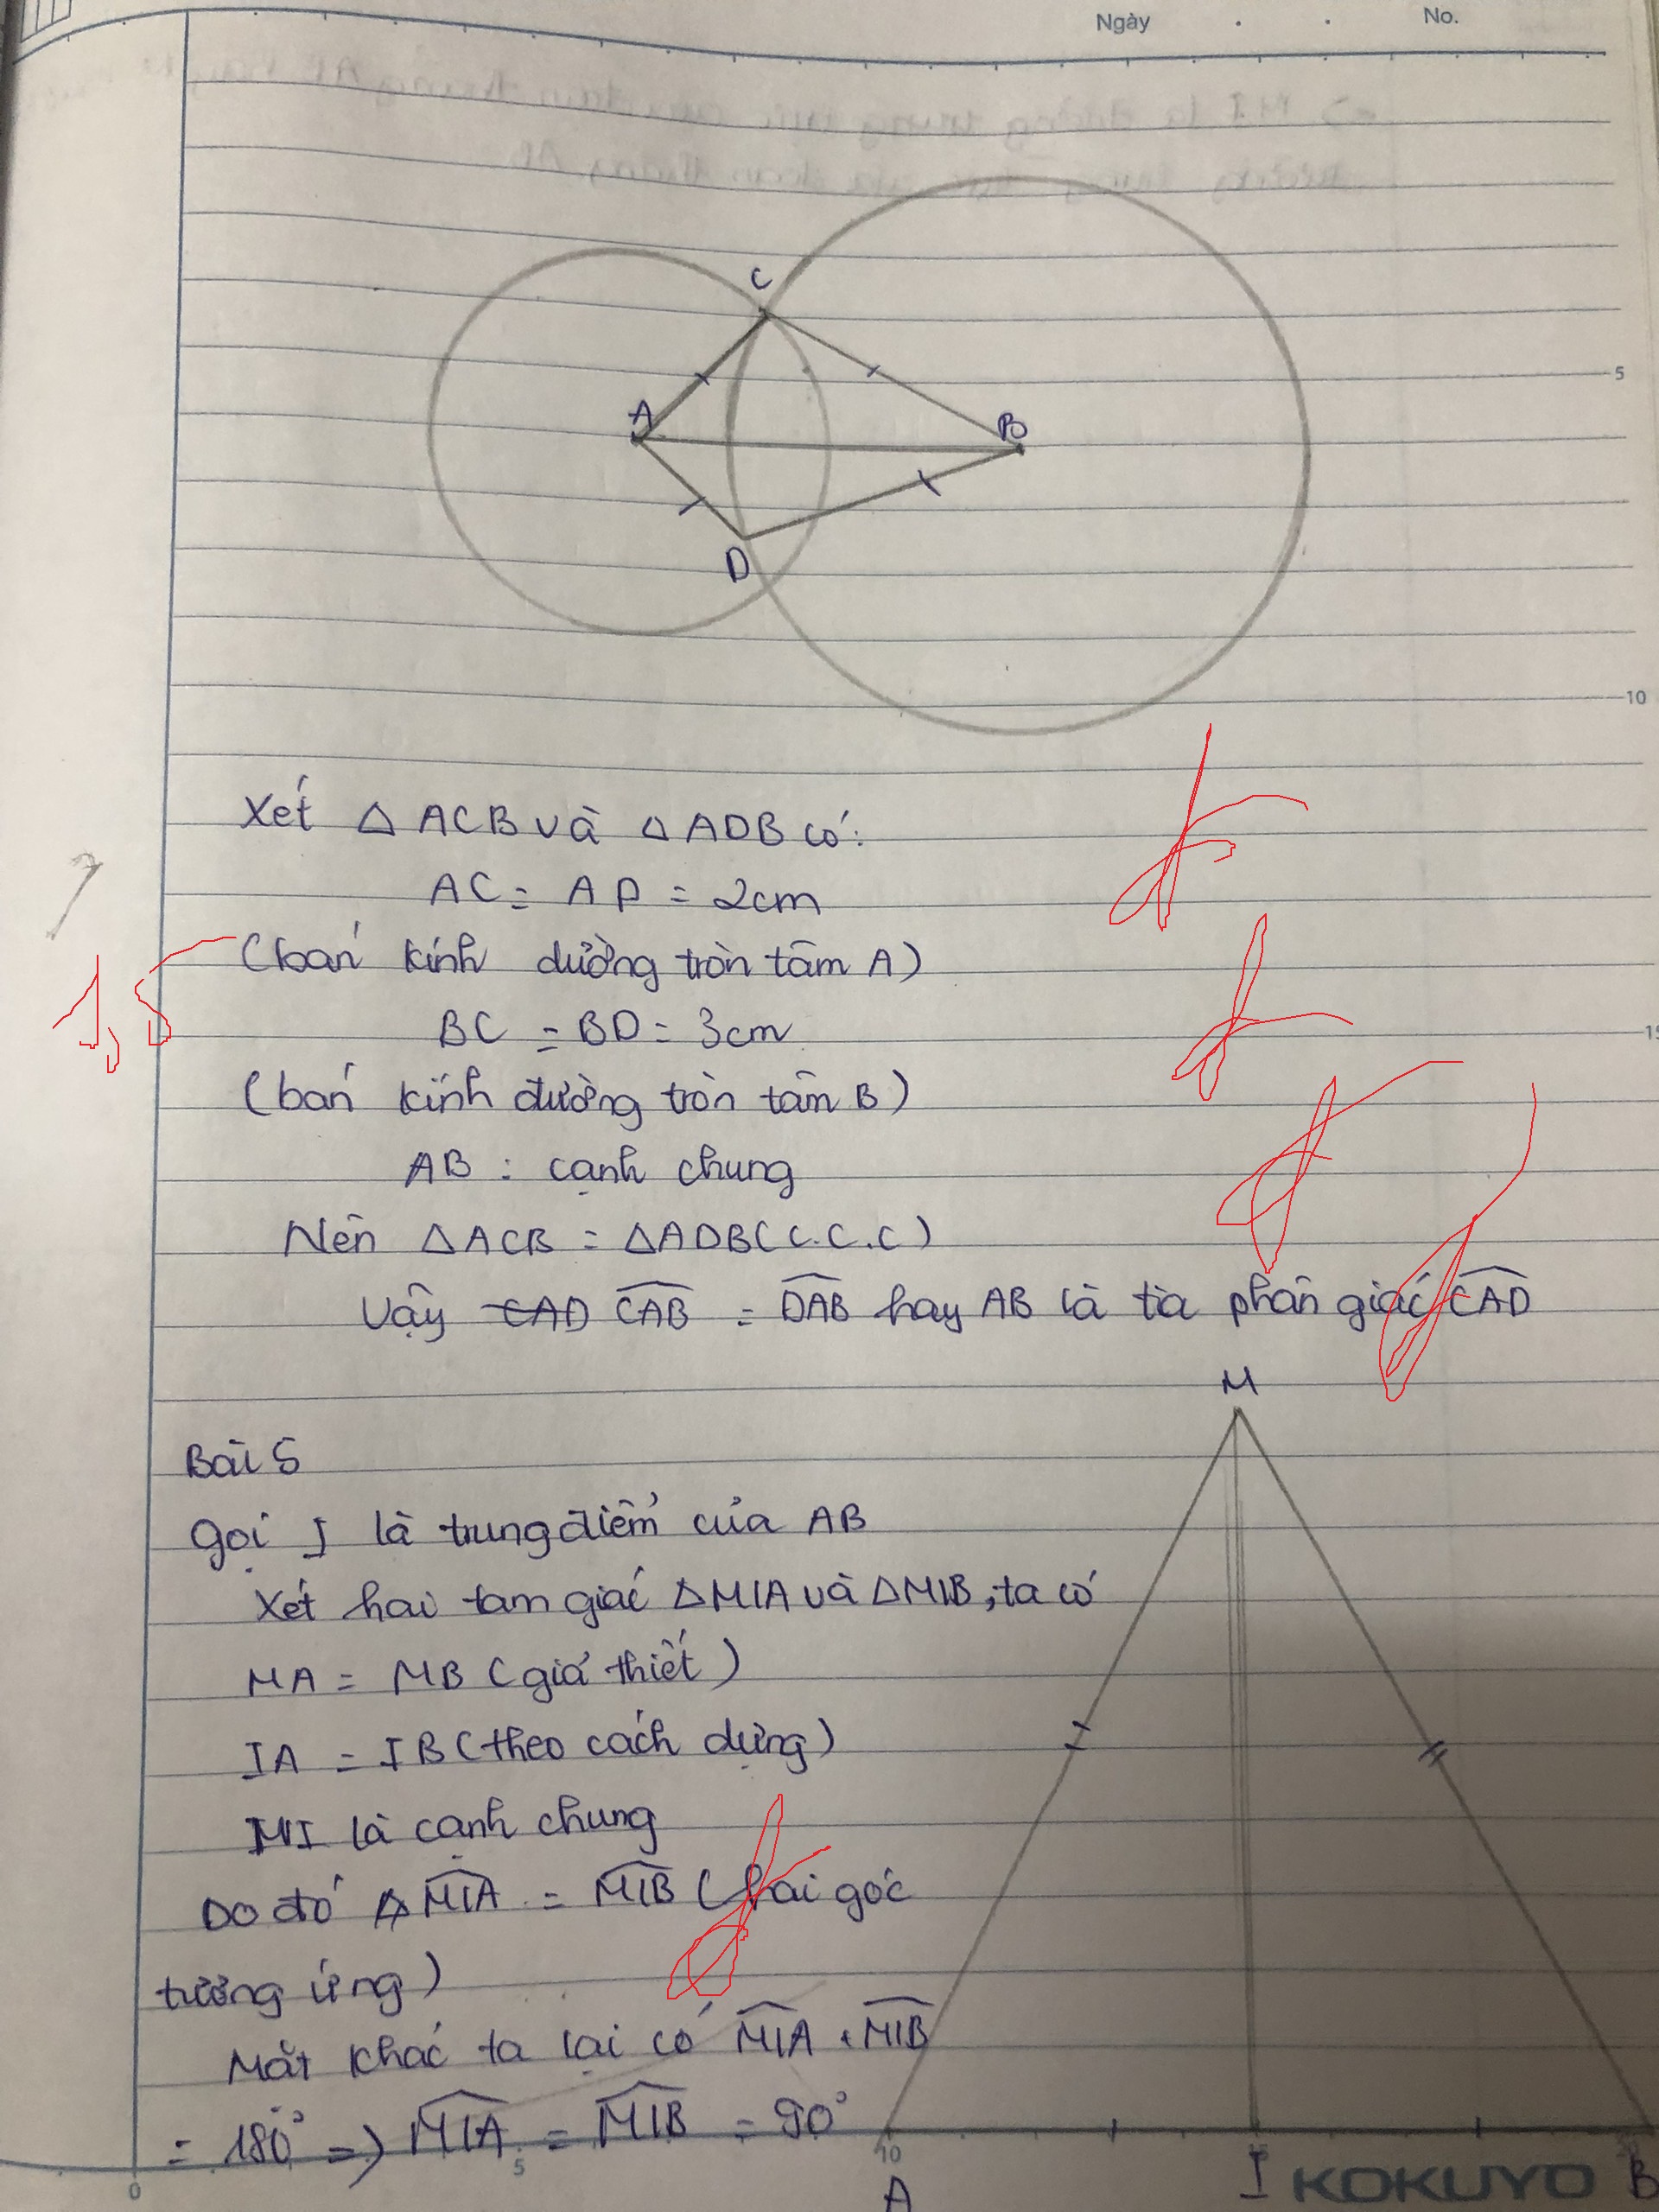 Ngày . . No.
C
A
B
D
5
10
15
Xét △ ACB và △ ADB có:
AC = AD = 2cm
(bán kính đường tròn tâm A)
1,5
BC = BD = 3cm
(bán kính đường tròn tâm B)
AB : cạnh chung
Nên △ACB = △ADB (c.c.c)
Vậy CAD CAB = DAB hay AB là tia phân giác CAD
M
Bài 5
Gọi I là trung điểm của AB
Xét hai tam giác △MIA và △MIB, ta có
MA = MB (giả thiết)
IA = IB (theo cách dựng)
MI là cạnh chung
Do đó MIA = MIB (hai góc
tương ứng)
Mặt khác ta lại có MIA + MIB
= 180° => MIA = MIB = 90°
0 5 10
A I KOKUYO B